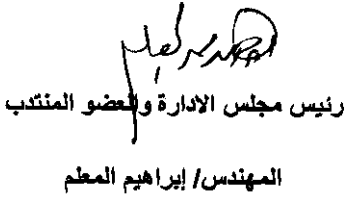 رئيس مجلس الادارة والعضو المنتدب
المهندس/ إبراهيم المعلم